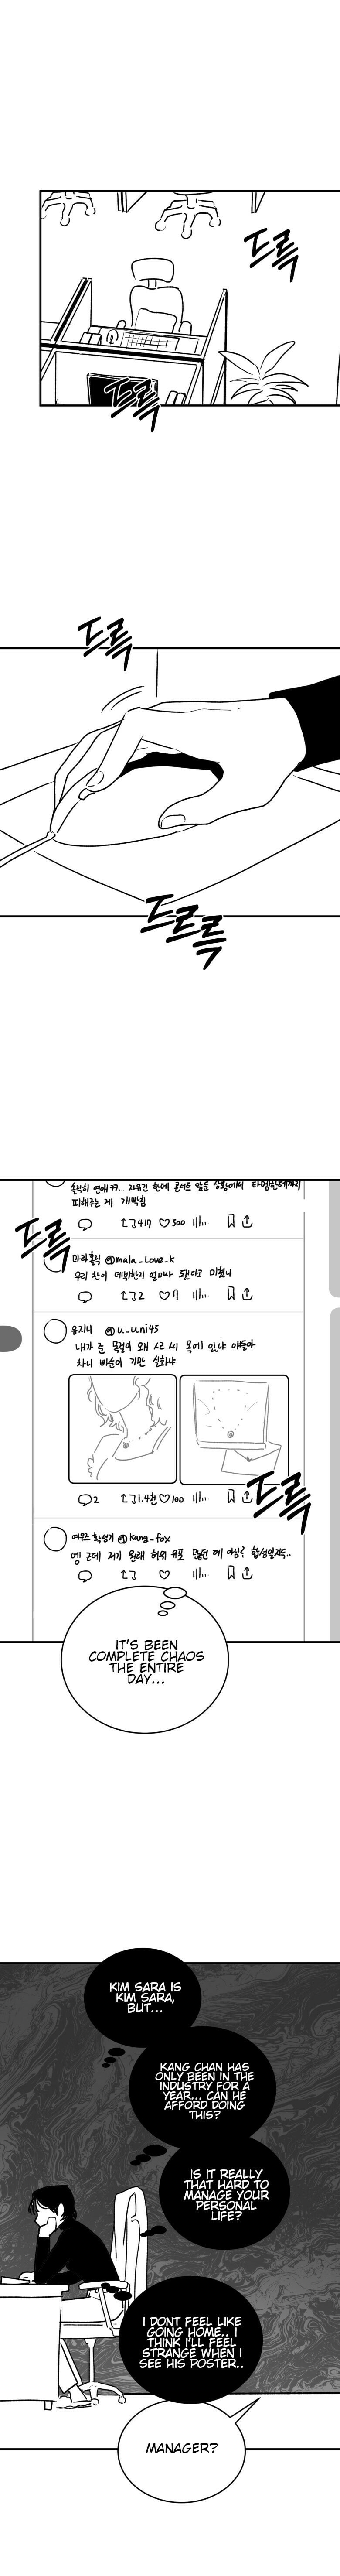 드륵
드륵
드륵
드르륵
솔직히 연애
피해주는 게 개빡침
417 500
드륵
마라홀릭 @mala_love_k
우리 찬이
2 7
유지니 @u_uni45
내가 준 목걸이 왜 사라 씨 목에 있냐
차니 비순이 기만 실화냐
2 1.4천 100
드륵
@kang_fox
엥 근데 저기 원래 허위 유포
IT'S BEEN
COMPLETE CHAOS
THE ENTIRE
DAY...
KIM SARA IS
KIM SARA,
BUT...
KANG CHAN HAS
ONLY BEEN IN THE
INDUSTRY FOR A
YEAR... CAN HE
AFFORD DOING
THIS?
IS IT REALLY
THAT HARD TO
MANAGE YOUR
PERSONAL
LIFE?
I DONT FEEL LIKE
GOING HOME.. I
THINK I'LL FEEL
STRANGE WHEN I
SEE HIS POSTER..
MANAGER?